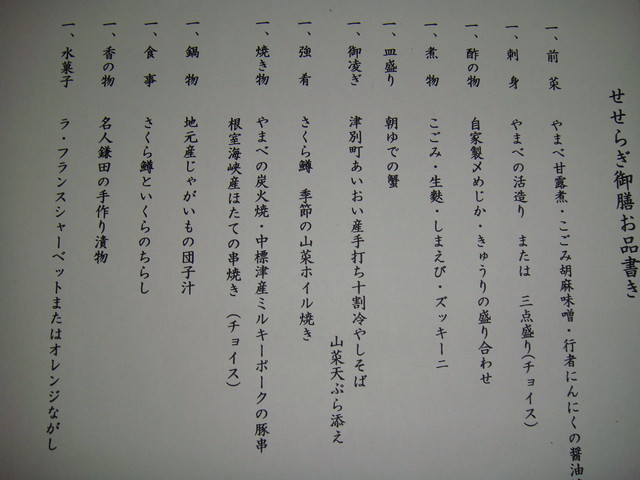 せせらぎ御膳お品書き
一、前菜　やまべ甘露煮・こごみ胡麻味噌・行者にんにくの醤油
一、刺身　やまべの活造り　または　三点盛り（チョイス）
一、酢の物　自家製〆めじか・きゅうりの盛り合わせ
一、煮物　こごみ・生麩・しまえび・ズッキーニ
一、皿盛り　朝ゆでの蟹
一、御凌ぎ　津別町あいおい産手打ち十割冷やしそば
山菜天ぷら添え
一、強肴　さくら鱒　季節の山菜ホイル焼き
一、焼き物　やまべの炭火焼・中標津産ミルキーポークの豚串
根室海峡産ほたての串焼き（チョイス）
一、鍋物　地元産じゃがいもの団子汁
一、食事　さくら鱒といくらのちらし
一、香の物　名人鎌田の手作り漬物
一、水菓子　ラ・フランスシャーベットまたはオレンジながし